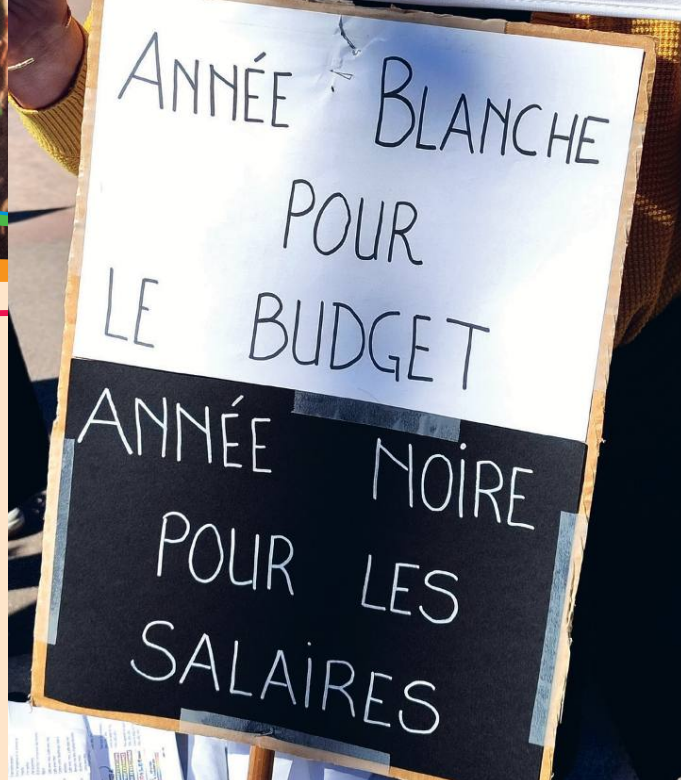 ANNÉE BLANCHE
POUR
LE BUDGET
ANNÉE NOIRE
POUR LES
SALAIRES